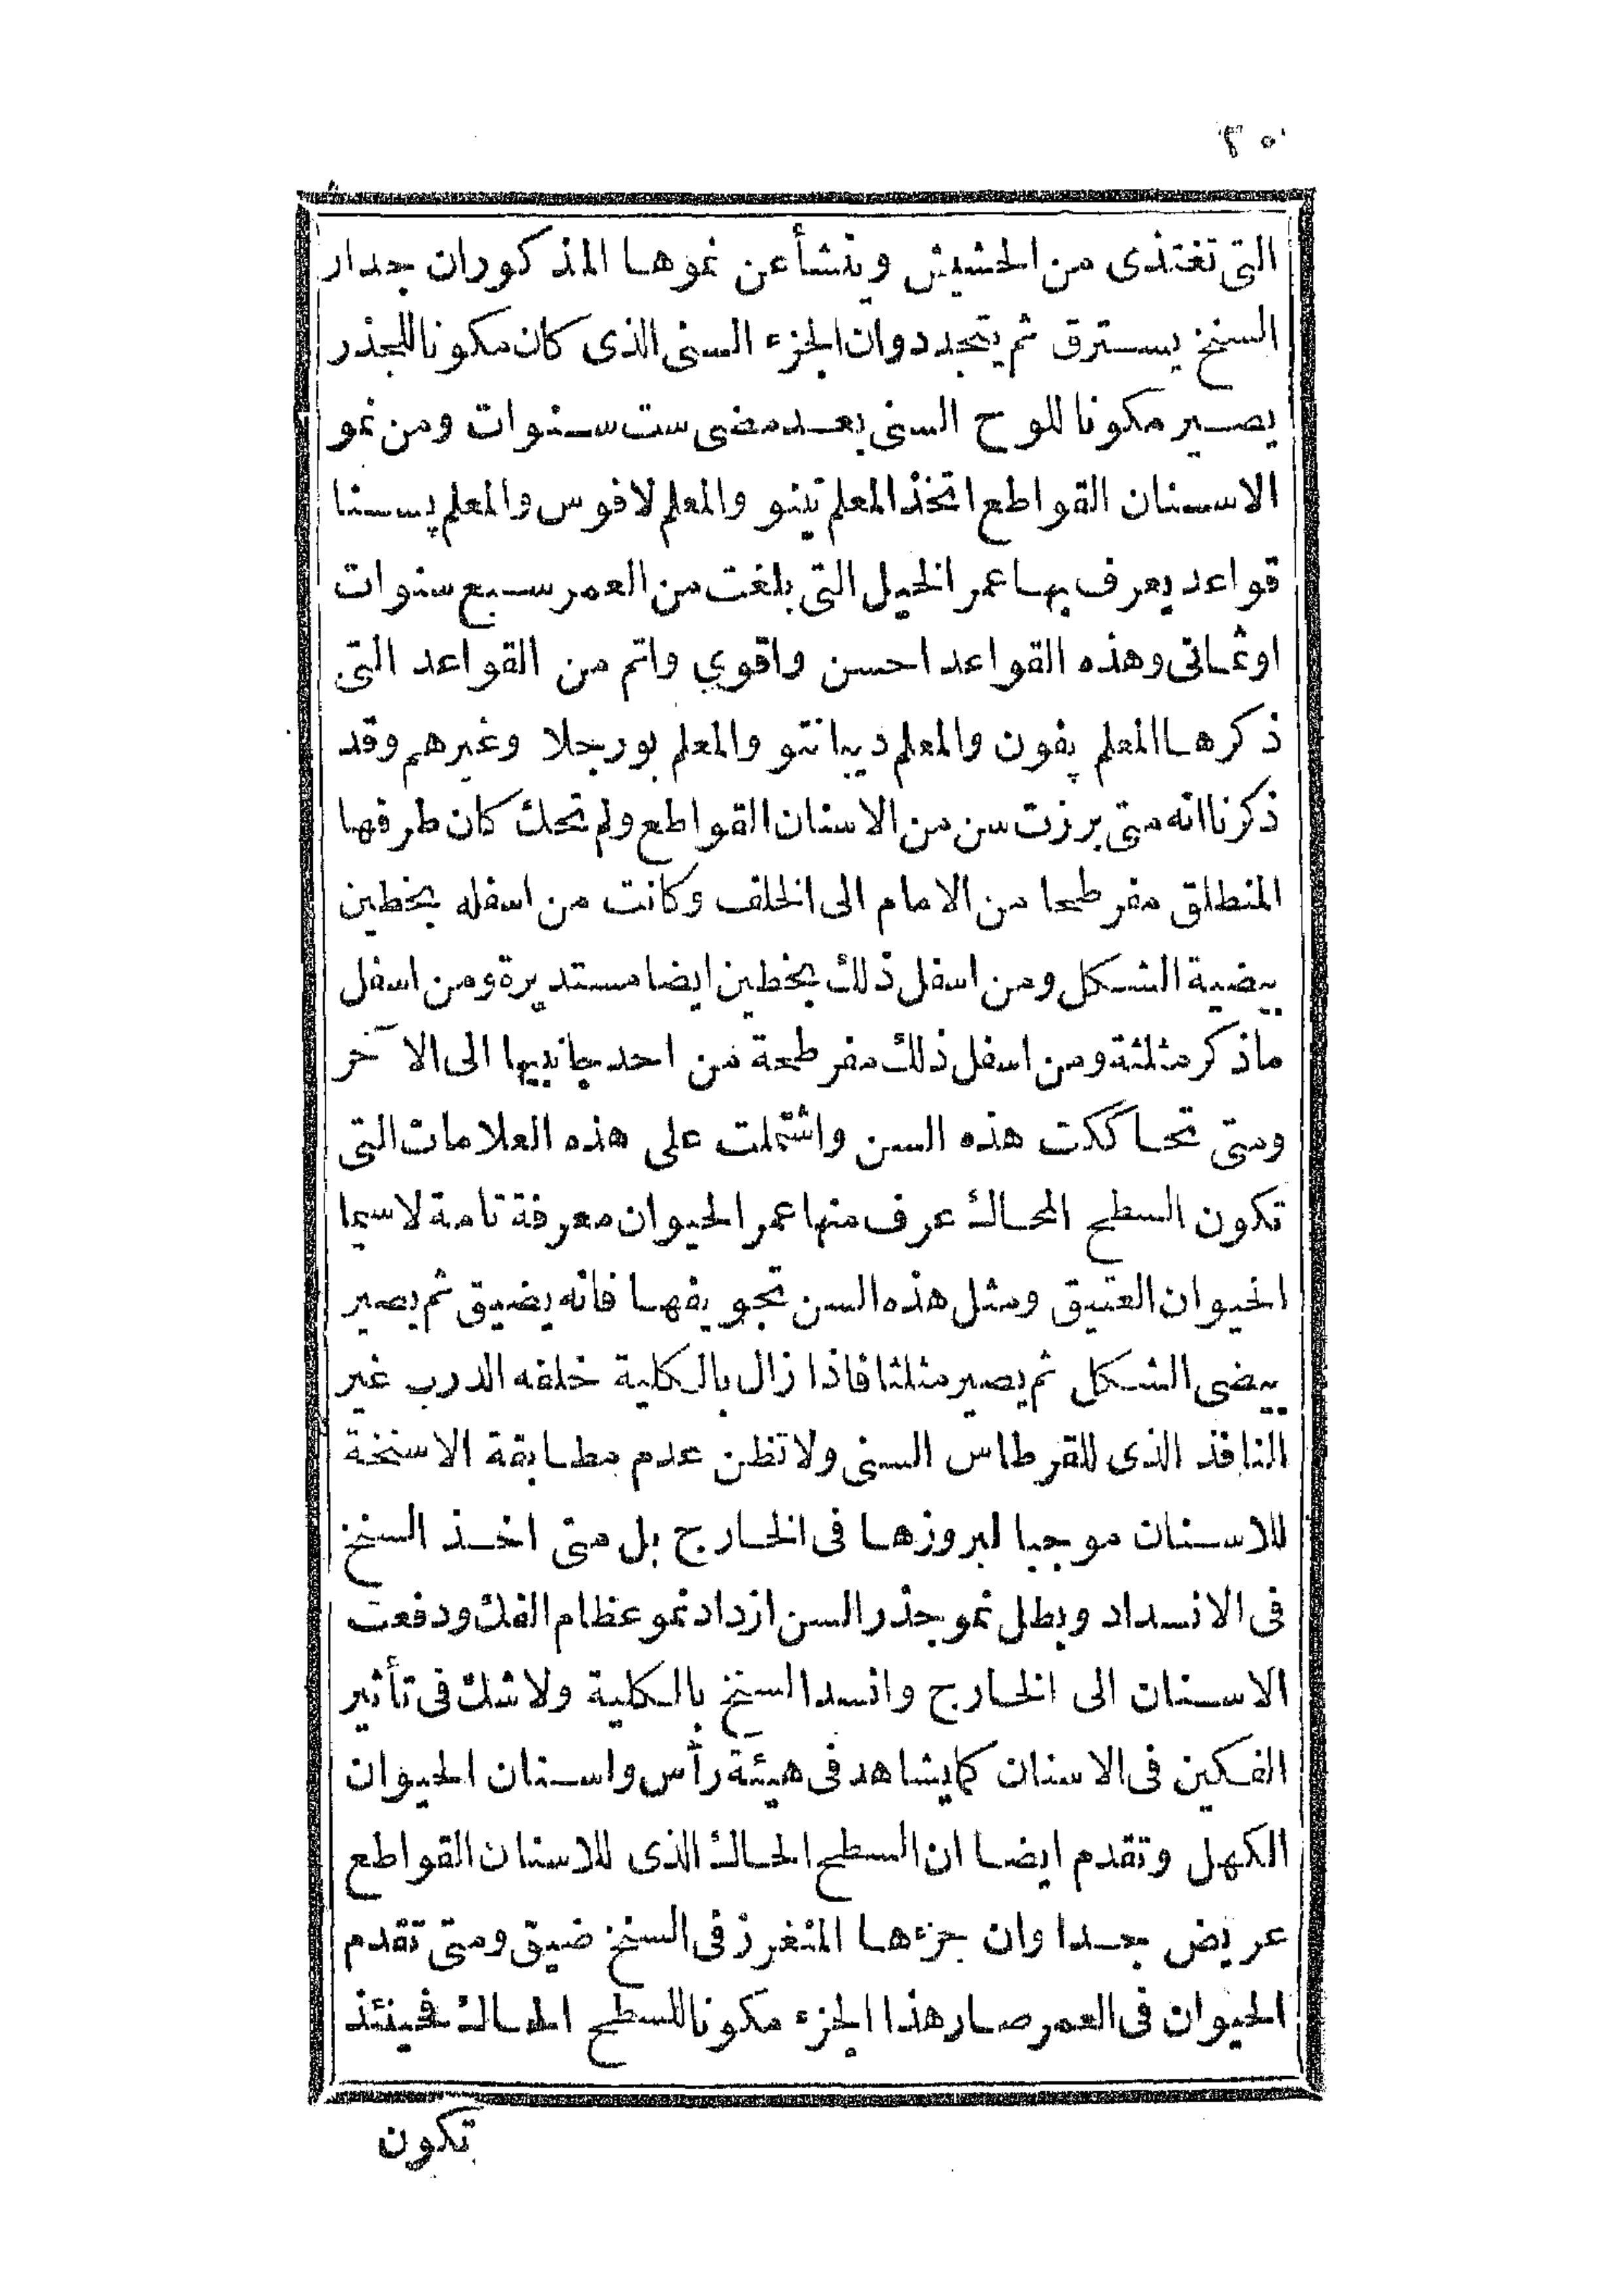 التى تغتذى من الحشيش وينشأ عن نموها المذكوران جدار
السنخ يسترق ثم يتجدد وان الجزء السنى الذى كان مكونا للجذر
يصير مكونا للوح السنى بعد مضى ست سنوات ومن نمو
الاسنان القواطع اتخذ المعلم تينو والمعلم لافوس والمعلم پسنا
قواعد يعرف بها عمر الخيل التى بلغت من العمر سبع سنوات
اوثمانى وهذه القواعد احسن واقوي واتم من القواعد التى
ذكرها المعلم پفون والمعلم دبيانتو والمعلم بورجلا وغيرهم وقد
ذكرنا انه متى برزت سن من الاسنان القواطع ولم تحك كان طرفها
المنطلق مفرطحا من الامام الى الخلف وكانت من اسفله بخطين
بيضية الشكل ومن اسفل ذلك بخطين ايضا مستديرة ومن اسفل
ماذكر مثلثة ومن اسفل ذلك مفرطحة من احد جانبيها الى الآخر
ومتى تحاككت هذه السن واشتملت على هذه العلامات التى
تكون السطح المحاك عرف منها عمر الحيوان معرفة تامة لاسيما
الحيوان العتيق ومثل هذه السن تجويفها فانه يضيق ثم يصير
بيضى الشكل ثم يصير مثلثا فاذا زال بالكلية خلفه الدرب غير
النافذ الذى للقرطاس السنى ولا تظن عدم مطابقة الاسنخة
للاسنان موجبا لبروزها فى الخارج بل متى اخذ السنخ
فى الانسداد وبطل نمو جذر السن ازداد نمو عظام الفك ودفعت
الاسنان الى الخارج وانسد السنخ بالكلية ولا شك فى تأثير
الفكين فى الاسنان كما يشاهد فى هيئة رأس واسنان الحيوان
الكهل وتقدم ايضا ان السطح الحاك الذى للاسنان القواطع
عريض جدا وان جزءها المنغرز فى السنخ ضيق ومتى تقدم
الحيوان فى العمر صار هذا الجزء مكونا للسطح الحاك فحينئذ
تكون